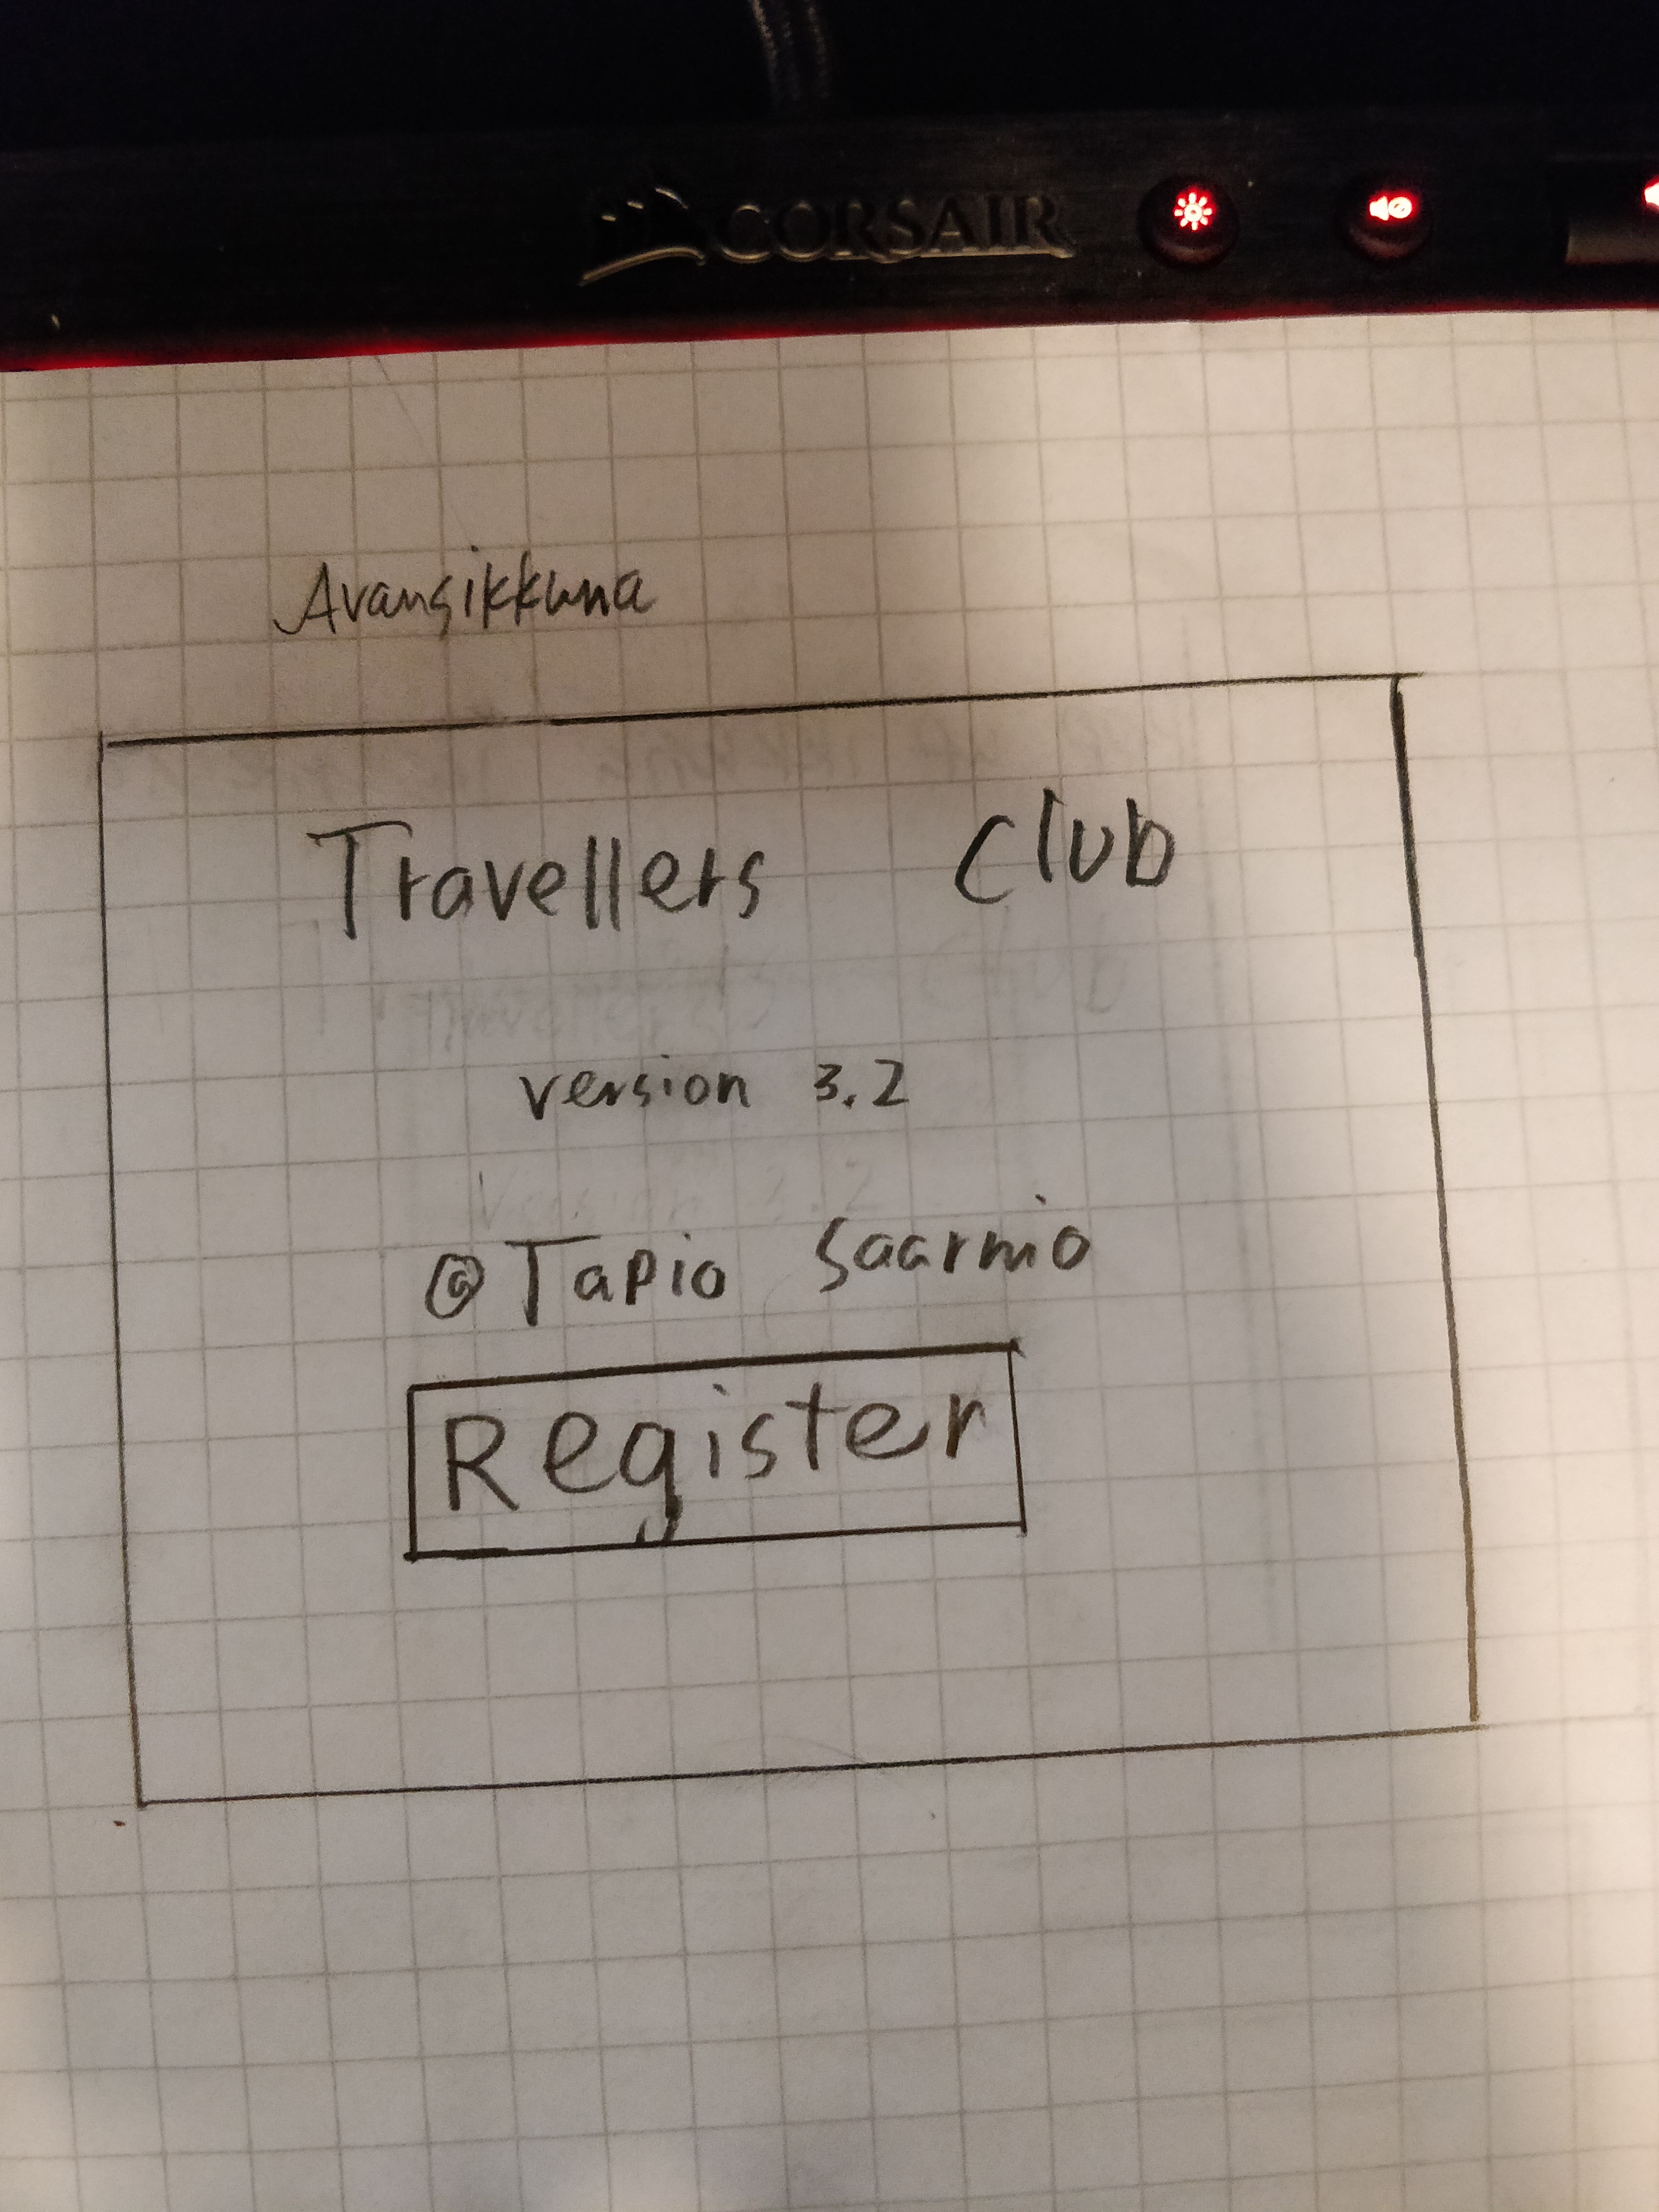 CORSAIR
Avausikkuna
Travellers Club
version 3.2
@Tapio Saarnio
Register